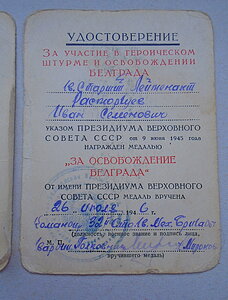 УДОСТОВЕРЕНИЕ
ЗА УЧАСТИЕ В ГЕРОИЧЕСКОМ
ШТУРМЕ И ОСВОБОЖДЕНИИ
БЕЛГРАДА
Гв. Старший Лейтенант
Расторгуев
Иван Семенович
УКАЗОМ ПРЕЗИДИУМА ВЕРХОВНОГО
СОВЕТА СССР от 9 июня 1945 года
НАГРАЖДЕН МЕДАЛЬЮ
„ЗА ОСВОБОЖДЕНИЕ
БЕЛГРАДА“
ОТ ИМЕНИ ПРЕЗИДИУМА ВЕРХОВНОГО
СОВЕТА СССР МЕДАЛЬ ВРУЧЕНА
26 июля 1946
32
(должность, воинское звание и подпись лица,
М. П.
вручившего медаль)